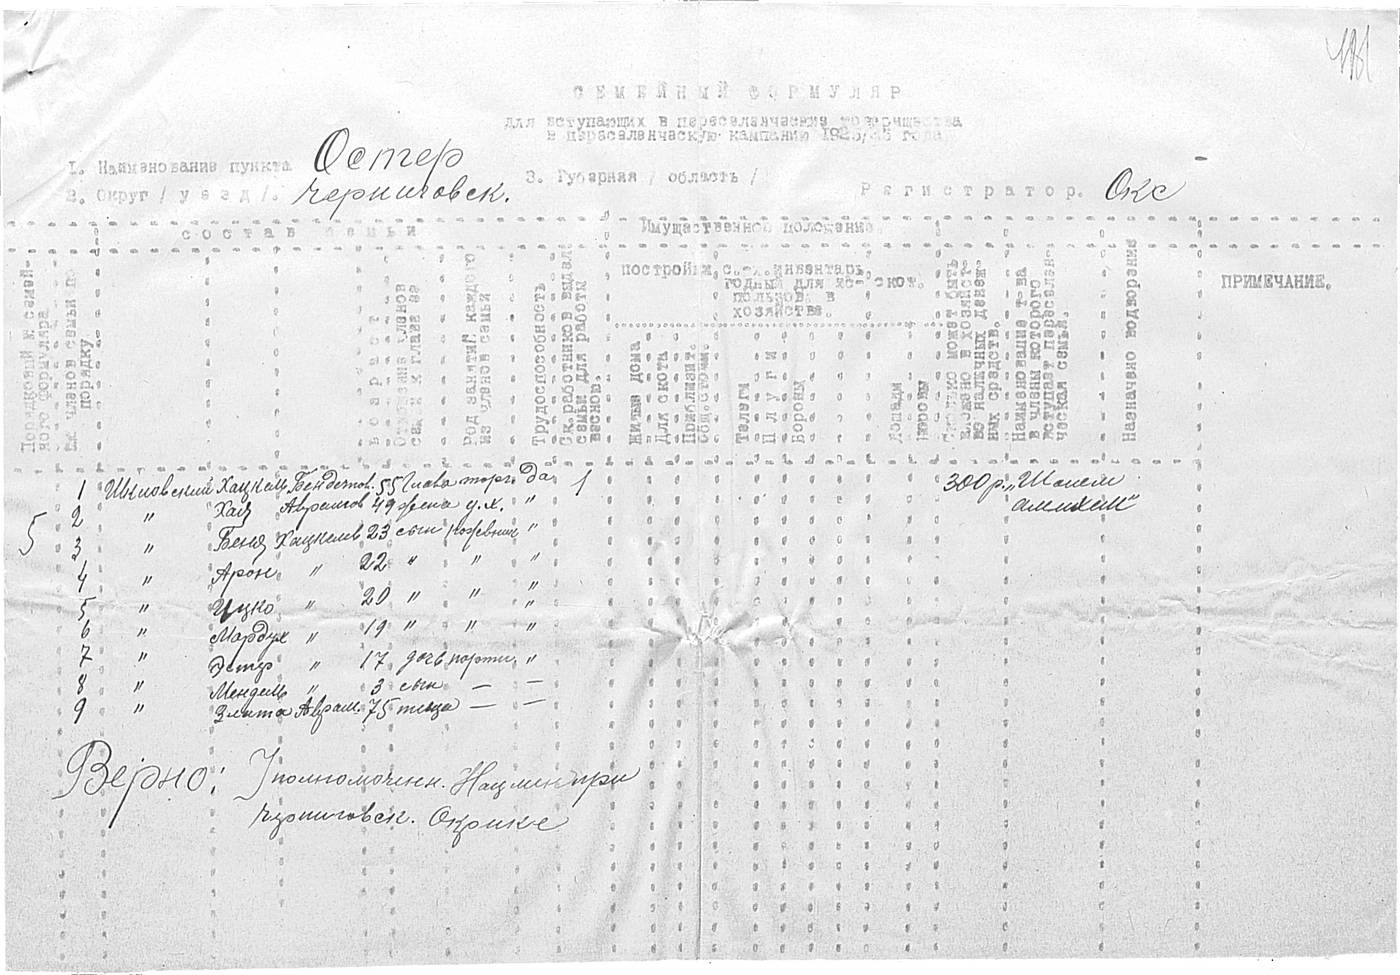 СЕМЕЙНЫЙ ФОРМУЛЯР
для вступающих в переселенческие товарищества
в переселенческую кампанию 1925/26 года
1. Наименование пункта Остер
2. Округ / уезд /. Черниговск. 3. Губерния / область / Регистратор. Окс
состав семьи Имущественное положение
постройки с.-х. инвентарь годный для использов. в хозяйстве. скот.
Порядковый № семейного формуляра
№№ членов семьи по порядку
возраст
Отношение членов семьи к главе ее
Род занятий каждого из членов семьи
Трудоспособность
Ск. работников выдел. семья для работы весною.
Жилые дома
Для скота
Приблизит. общ. стоим.
Телеги
Плуги
Бороны
Лошади
Коровы
Сколько может быть вложено в хозяйство наличных денежных средств.
Наименование т-ва в члены которого вступает переселенческая семья.
Назначено водворение
ПРИМЕЧАНИЕ.
5
1 Шкловский Хацкель Бендетов. 55 Глава торг. Да 1 300 р. „Шолем
2 " Хая Авраамов 49 жена д.х. " алейхем"
3 " Беня Хацкелев 23 сын кожевник "
4 " Арон " 22 " " "
5 " Ицко " 20 " " "
6 " Мордух " 19 " " "
7 " Эстер " 17 дочь портн. "
8 " Мендель " 3 сын — —
9 " Злата Аврам. 75 теща — —
Верно: Уполномоченн. Нацмен при
Черниговск. Окрике